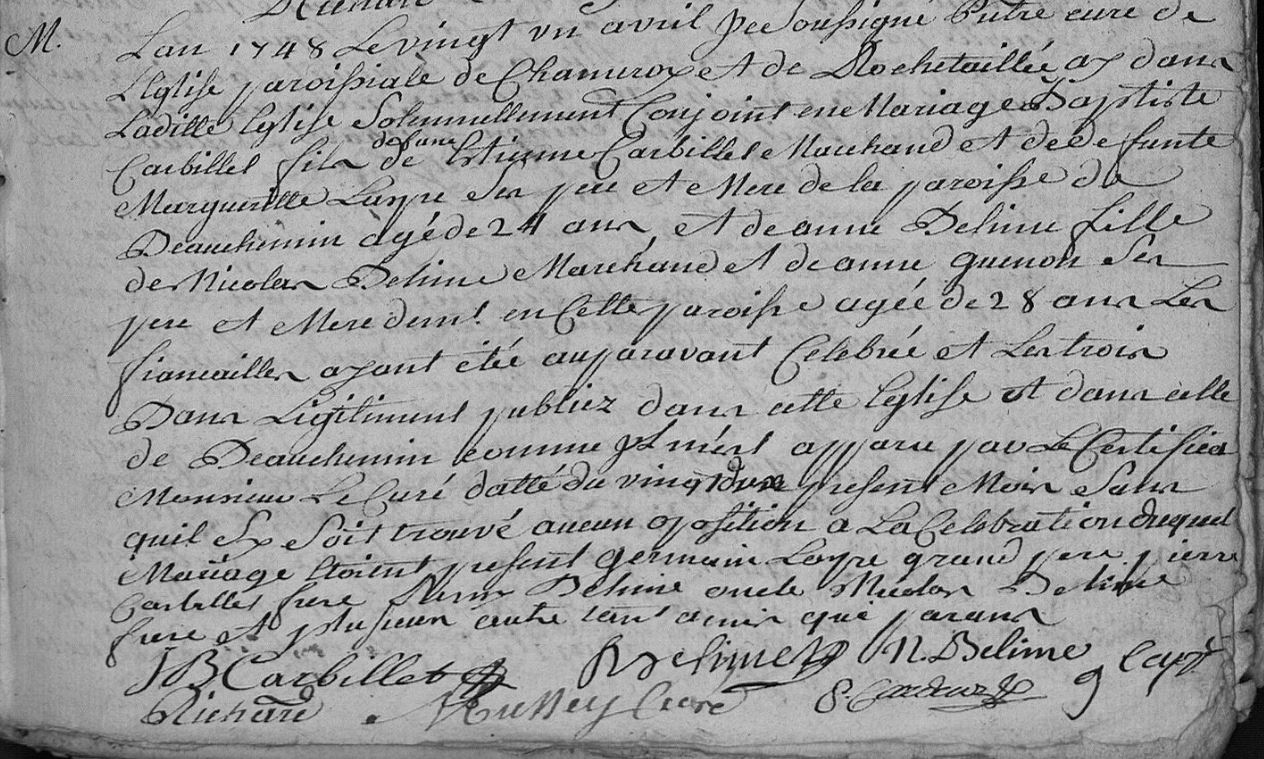 M.
Lan 1748 Le vingt vn avril je Soussigné Prêtre curé de
L'Eglise paroissiale de Chameroy et de Rochetaillée ay dans
Laditte Eglise Solennellement Conjoint en Mariage Baptiste
Carbillet fils de defunt Etienne Carbillet Marchand et de defunte
Margueritte Layre Ses pere et Mere de la paroisse de
Beauchemin agé de 24 ans et de anne Belime fille
de Nicolas Belime Marchand et de anne guenot Ses
pere et Mere demt. en Cette paroisse agée de 28 ans Les
fiancailles ayant été auparavant Celebrée et Les trois
Bans Legitiment publiez dans cette Eglise et dans celle
de Beauchemin comme il m'est apparu par Le Certificat
Monsieur Le Curé datté du vingt present Mois Sans
quil Sy Soit trouvé aucun oposition a La Celebration duquel
Mariage Etoient present germain Layre grand pere pierre
Carbillet frere Belime oncle Nicolas Belime
frere et plusieurs autre tant amis que parans
JB Carbillet Belime N. Belime g Layre
Richard Mussey Curé